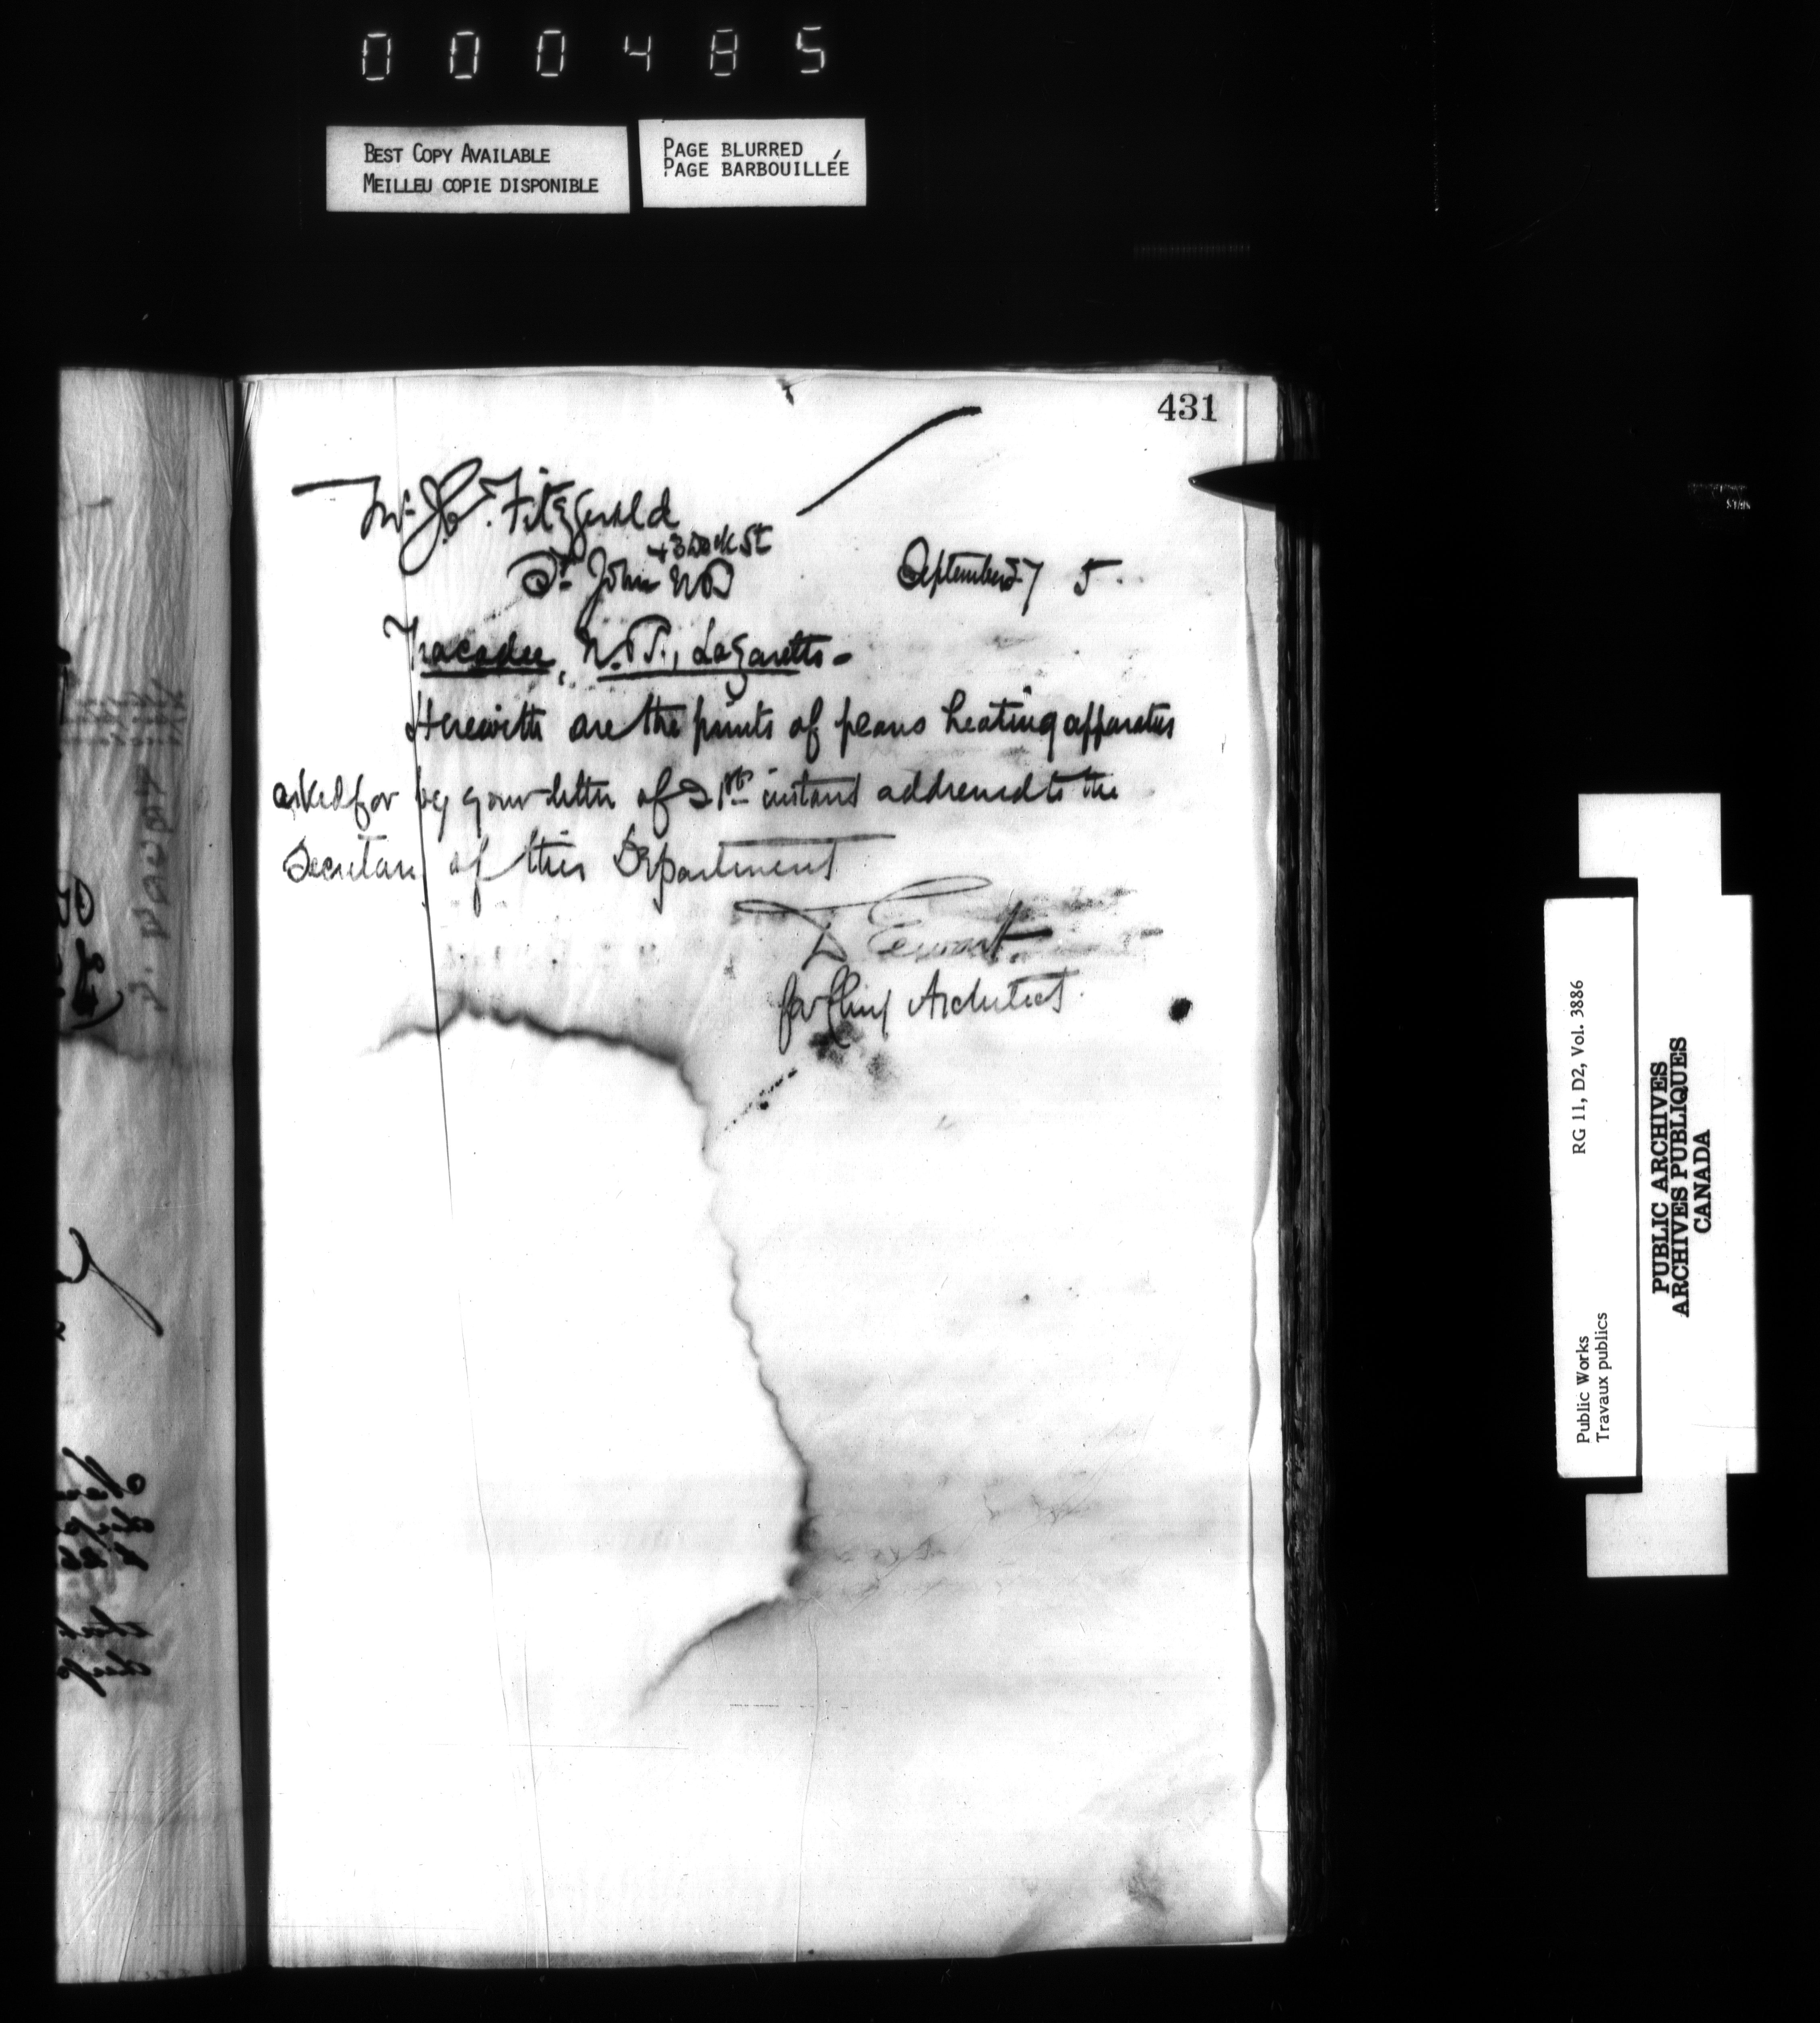 000485
BEST COPY AVAILABLE
MEILLEU COPIE DISPONIBLE
PAGE BLURRED
PAGE BARBOUILLÉE
431
Mr. J. Fitzgerald
43 Dock St
St. John NB
September 27 5.
Tracadee, N.B., Lazaretto-
Herewith are the prints of plans heating apparatus
asked for by your letter of 21st instant addressed to the
Secretary of this Department
D Ewart.
for Chief Architect.
Public Works
Travaux publics
RG 11, D2, Vol. 3886
PUBLIC ARCHIVES
ARCHIVES PUBLIQUES
CANADA